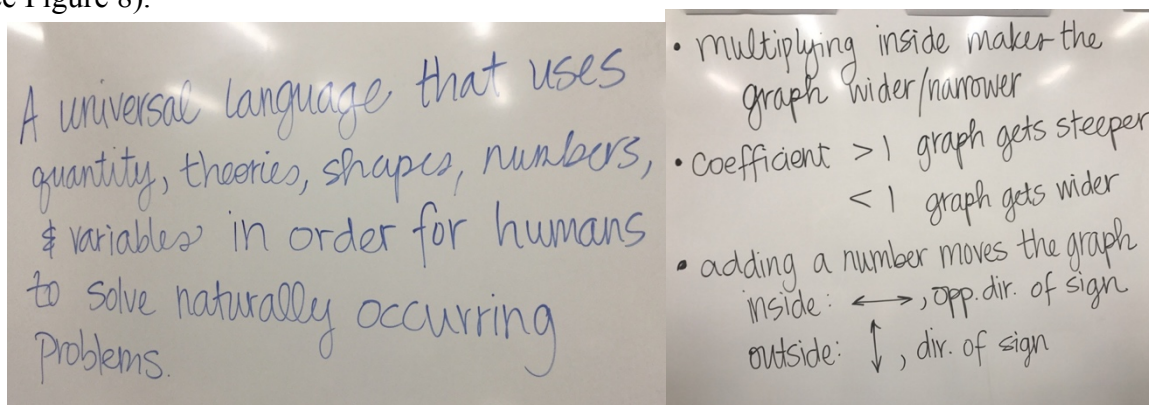 e Figure 8).
A universal language that uses
quantity, theories, shapes, numbers,
& variables in order for humans
to solve naturally occurring
problems.
• multiplying inside makes the
graph wider/narrower
• coefficient > 1 graph gets steeper
< 1 graph gets wider
• adding a number moves the graph
inside: ↔, opp. dir. of sign
outside: ↕, dir. of sign